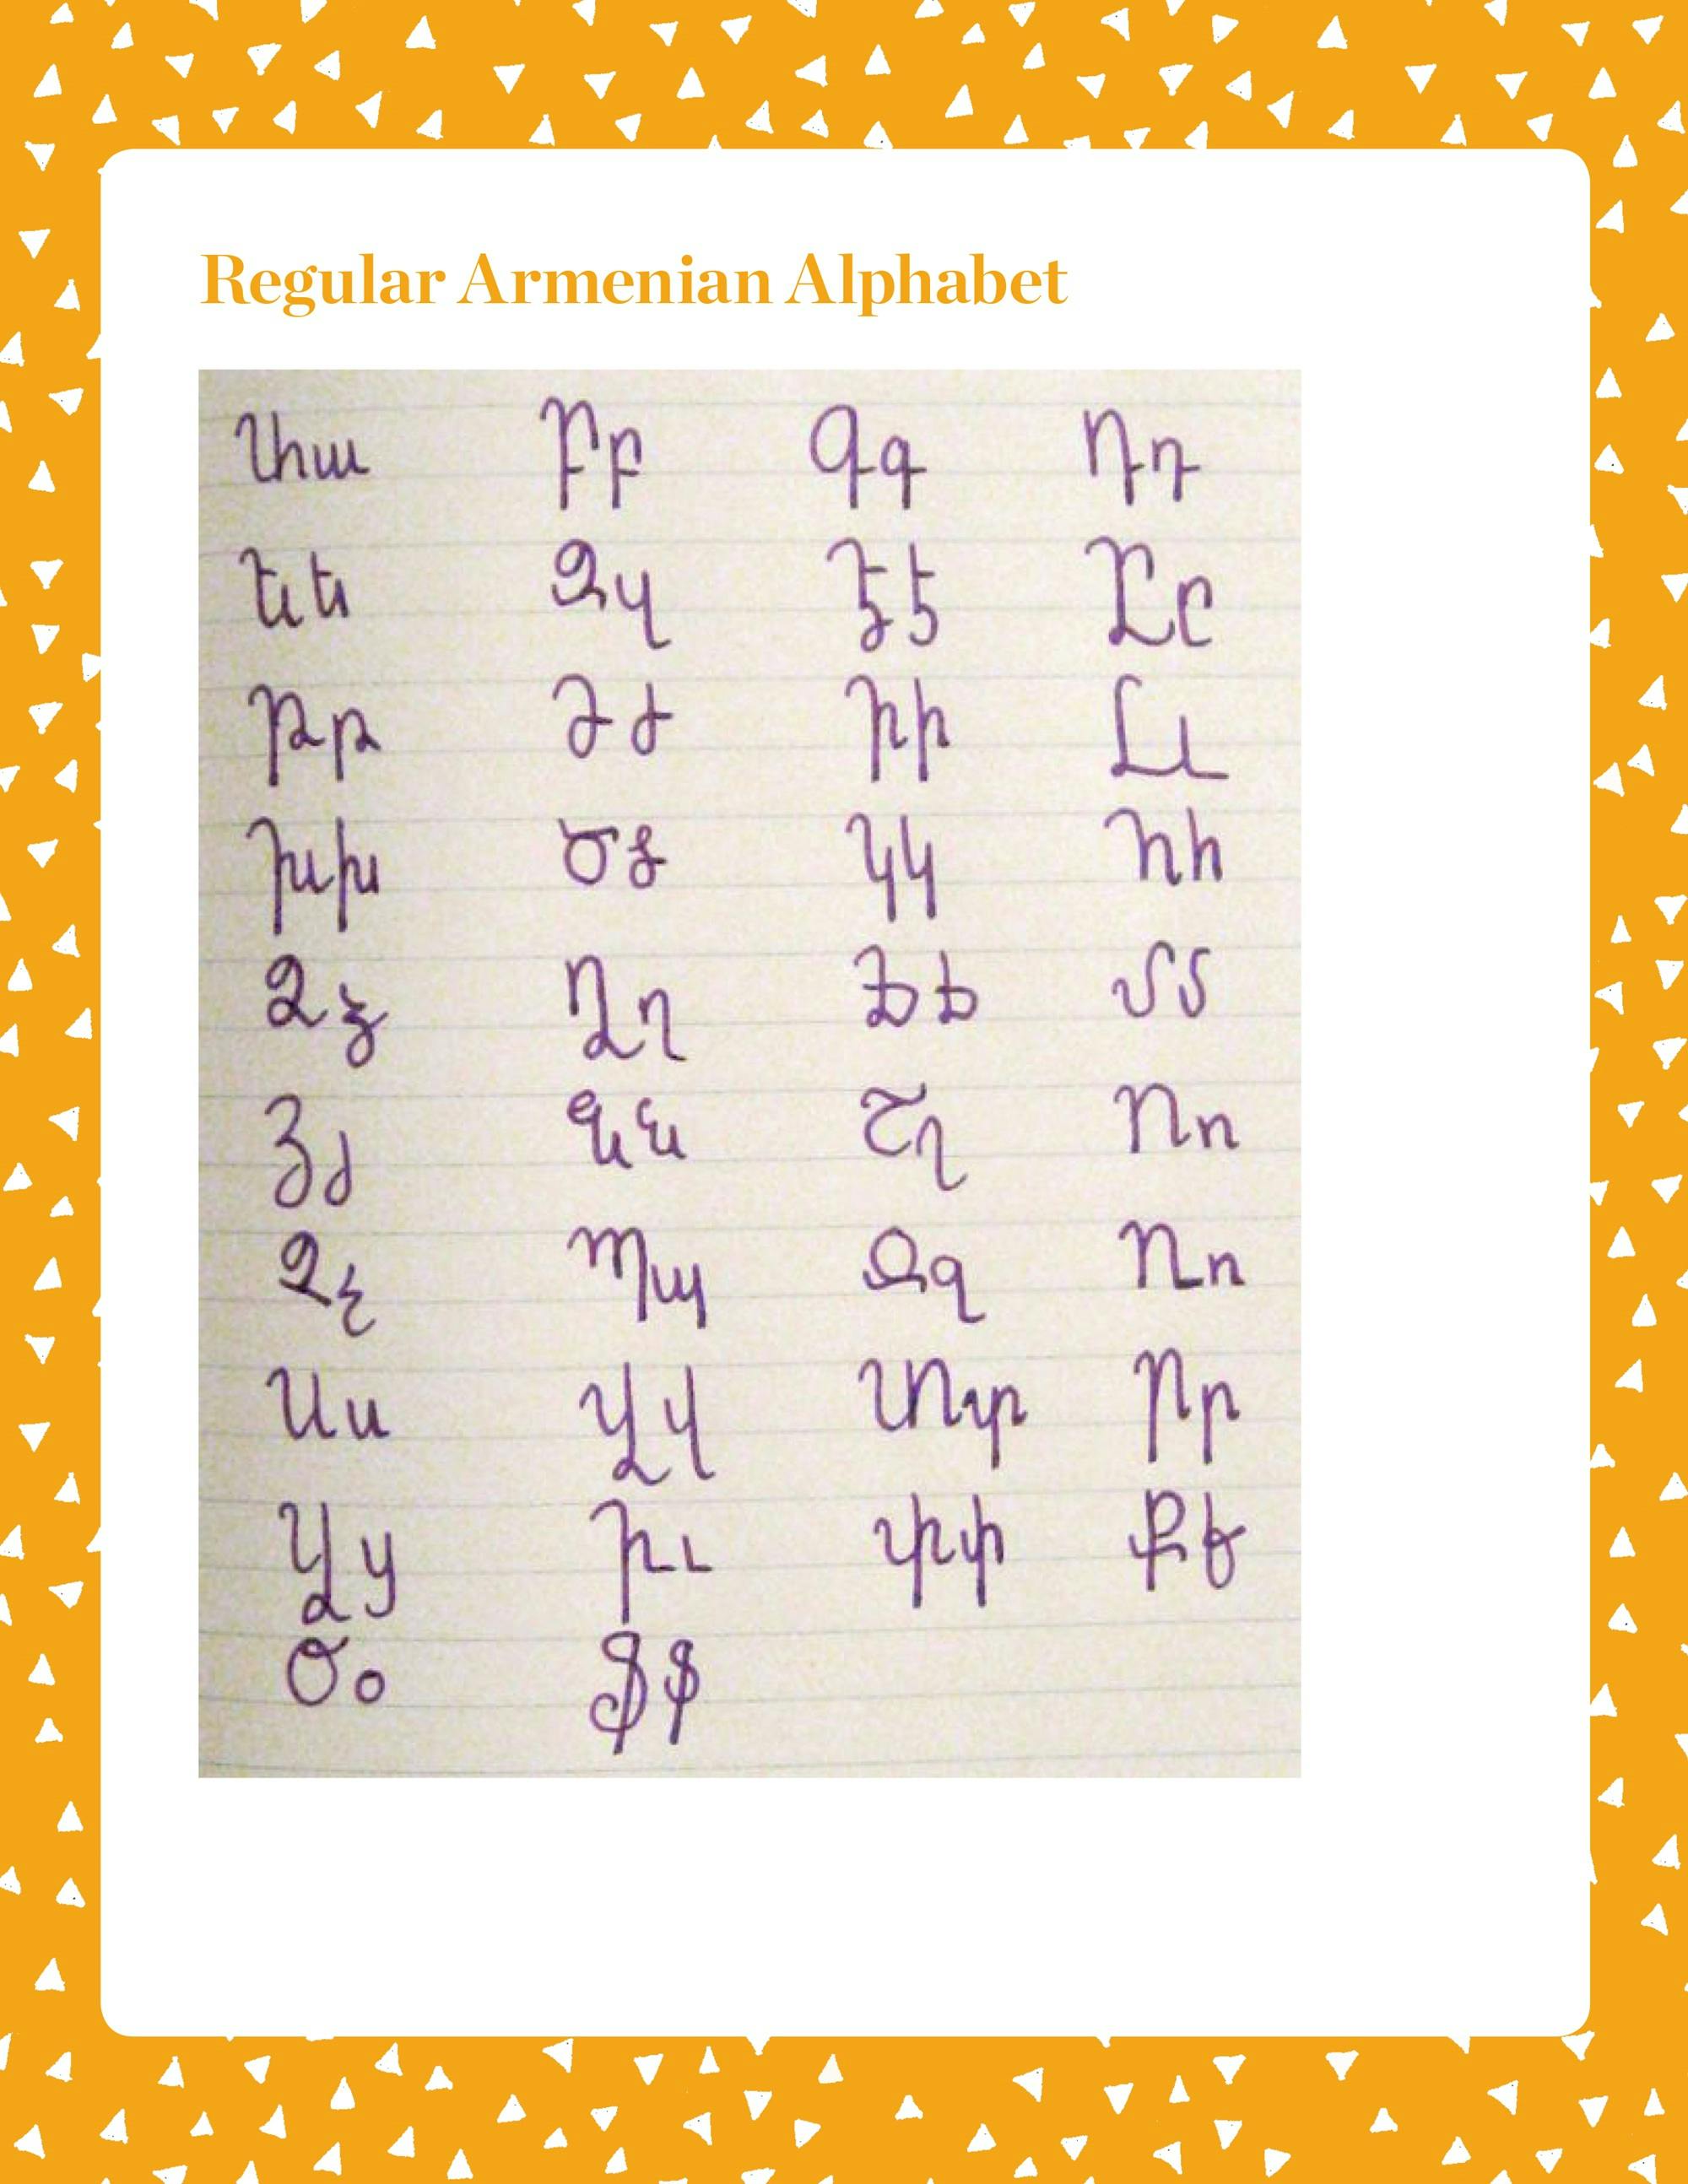 Regular Armenian Alphabet
Աա Բբ Գգ Դդ
Եե Զզ Էէ Ըը
Թթ Ժժ Իի Լլ
Խխ Ծծ Կկ Հհ
Ձձ Ղղ Ճճ Մմ
Յյ Նն Շշ Ոո
Չչ Պպ Ջջ Ռռ
Սս Վվ Տտ Րր
Ցց Իւ Փփ Քք
Օօ Ֆֆ